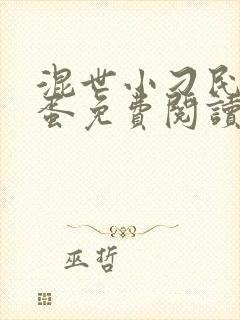 混世小刁民
蚕免費閱讀
巫哲